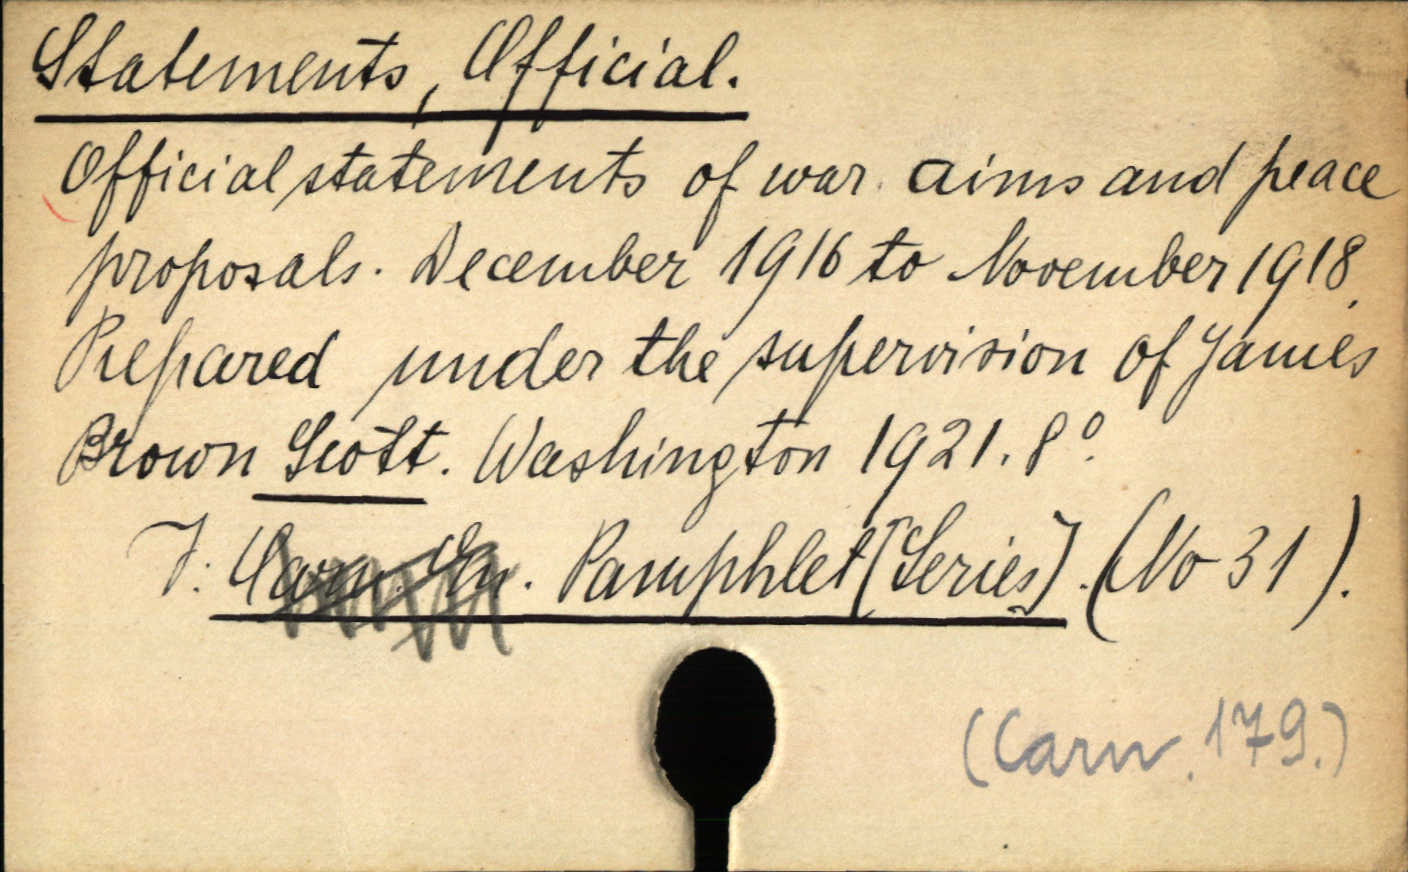 Statements, Official.
Official statements of war aims and peace
proposals. December 1916 to November 1918.
Prepared under the supervision of James
Brown Scott. Washington 1921. 8º.
F: Carn. En. Pamphlet [Series]. (No 31).
(Carn. 179.)